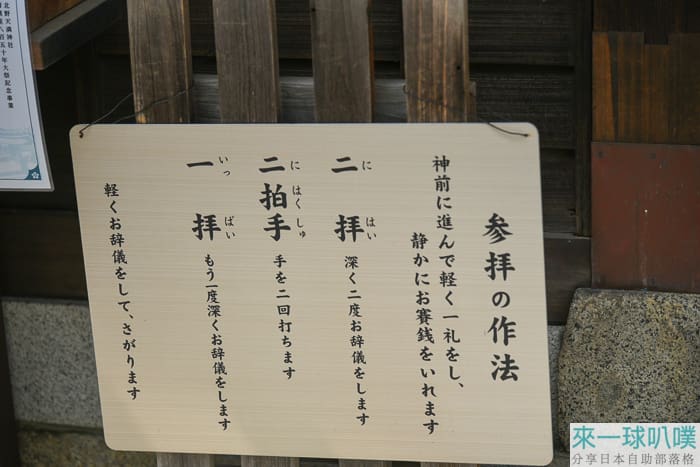 参拝の作法
神前に進んで軽く一礼をし、
静かにお賽銭をいれます
二拝 にはい
深く二度お辞儀をします
二拍手 にはくしゅ
手を二回打ちます
一拝 いっぱい
もう一度深くお辞儀をします
軽くお辞儀をして、さがります
北野天満神社
八百五十年大祭記念事業
來一球叭噗
分享日本自助部落格